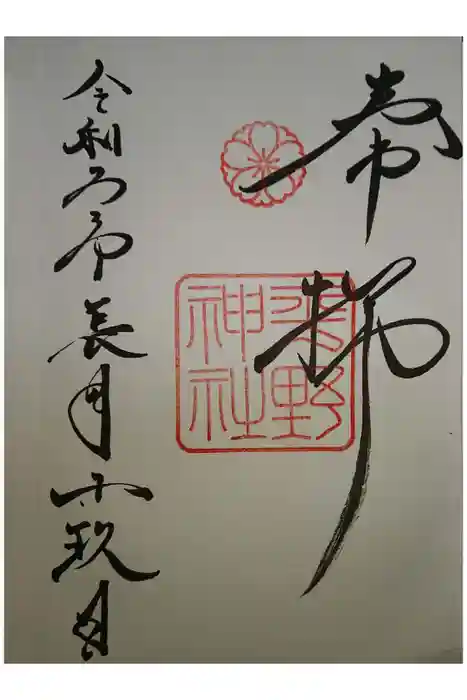 奉拝
平野
神社
令和 年長月 玖日